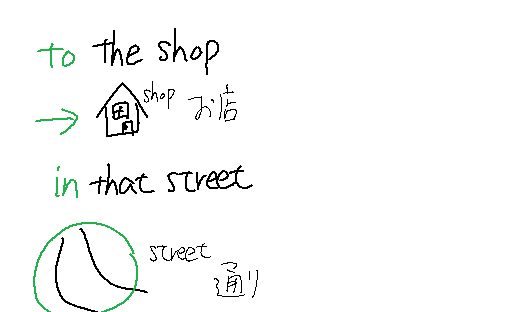 to the shop
shop お店
in that street
street 通り